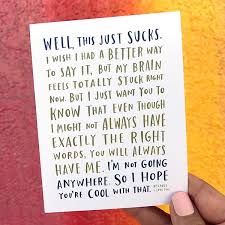 WELL, THIS JUST SUCKS.
I WISH I HAD A BETTER WAY
TO SAY IT, BUT MY BRAIN
FEELS TOTALLY STUCK RIGHT
NOW. BUT I JUST WANT YOU TO
KNOW THAT EVEN THOUGH
I MIGHT NOT ALWAYS HAVE
EXACTLY THE RIGHT
WORDS, YOU WILL ALWAYS
HAVE ME. I'M NOT GOING
ANYWHERE. SO I HOPE
YOU'RE COOL WITH THAT.